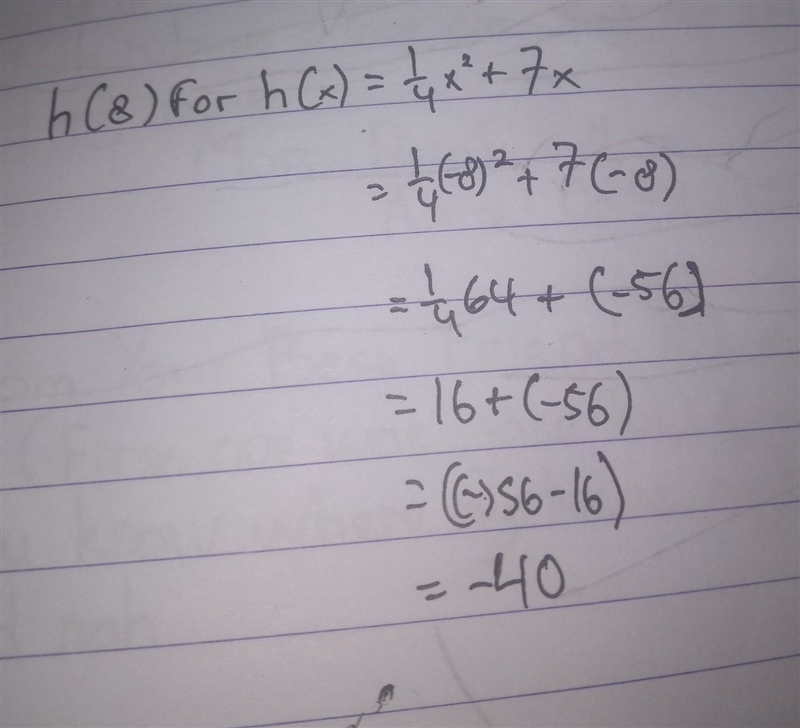 h(8) for h(x) = 1/4 x² + 7x
= 1/4 (-8)² + 7(-8)
= 1/4 64 + (-56)
= 16 + (-56)
= ((-)56 - 16)
= -40